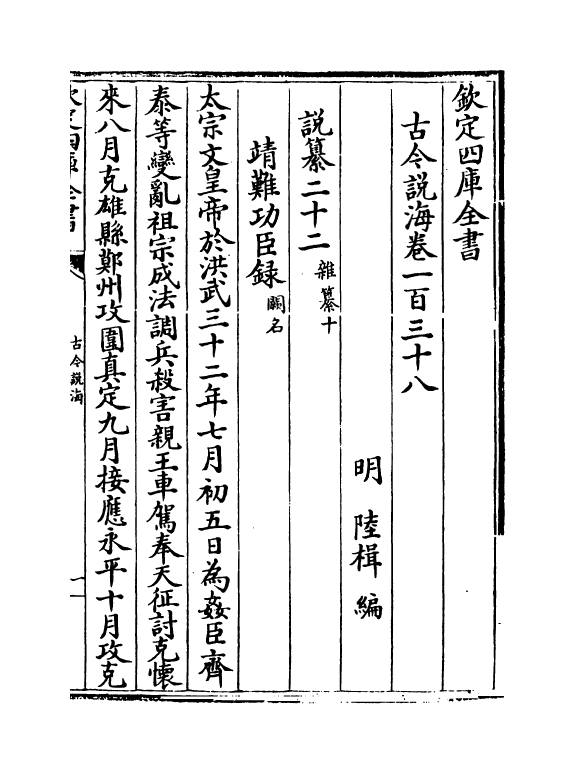 欽定四庫全書
古今説海卷一百三十八
明 陸楫 編
説纂二十二 雜纂十
靖難功臣録 闕名
太宗文皇帝於洪武三十二年七月初五日為姦臣齊
泰等變亂祖宗成法調兵殺害親王車駕奉天征討克懷
來八月克雄縣鄭州攻圍真定九月接應永平十月攻克
欽定四庫全書
古今説海
一